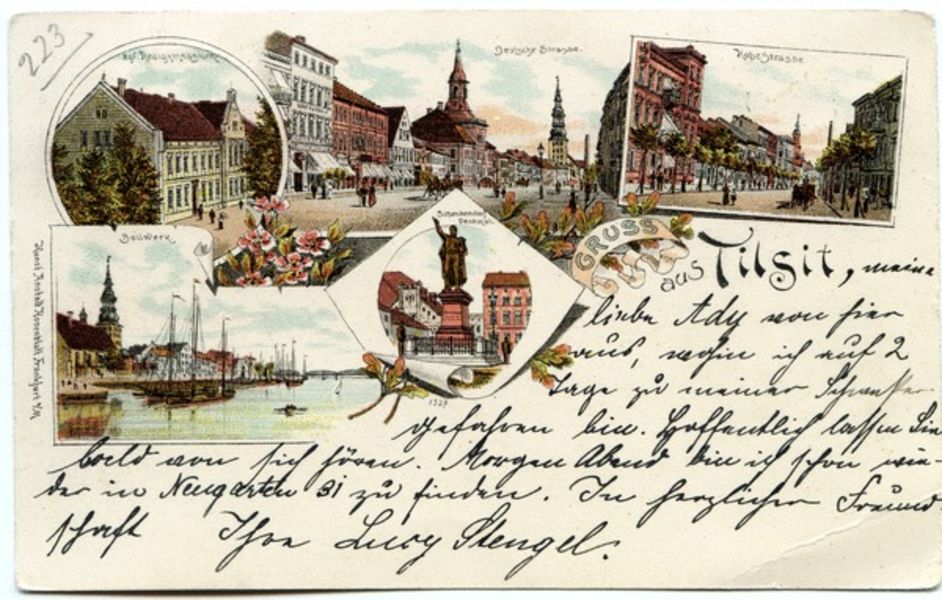 223
Kgl. Realgymnasium
Deutsche Strasse.
Hohe Strasse
Bollwerk
Schenkendorf
Denkmal.
1527
Kunst Anstalt Rosenblatt, Frankfurt a/M.
GRUSS
aus Tilsit, meine
liebe Ady von hier
aus, wohin ich auf 2
Tage zu meiner Schwester
gefahren bin. Hoffentlich lassen Sie
bald von sich hören. Morgen Abend bin ich schon wie-
der in Neugarten 31 zu finden. In herzlicher Freund
schaft Ihre Lucy Stengel.